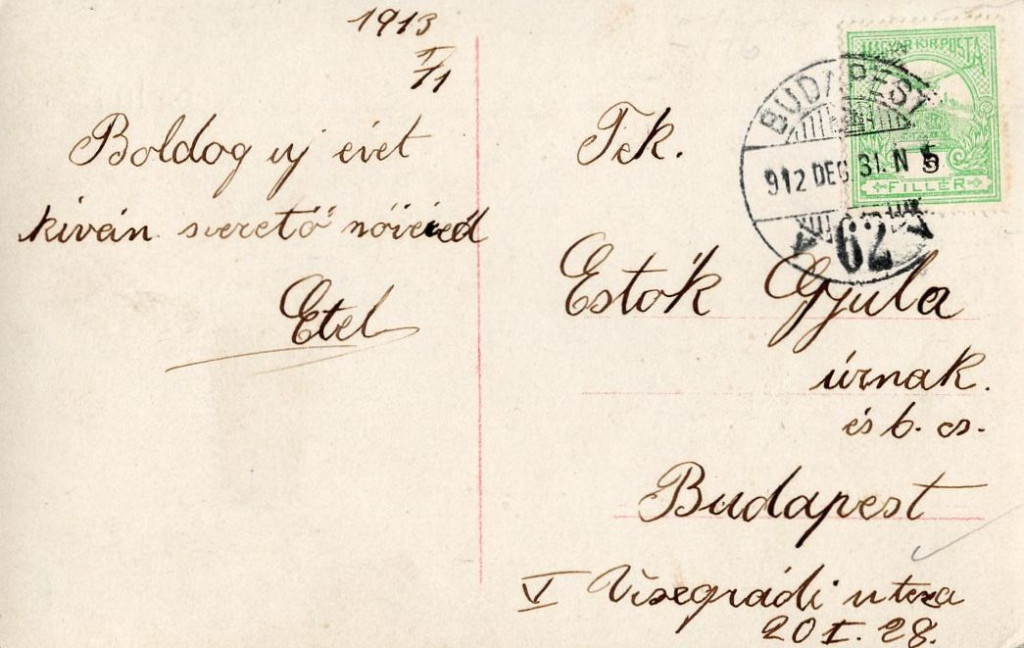 1913
I/1
Boldog uj évet
kíván szerető nővéred
Etel
Tek.
Estók Gyula
úrnak.
és b. cs.
Budapest
V Visegrádi utcza
20 I. 28.
MAGYAR KIR. POSTA
5
FILLÉR
BUDAPEST
912 DEC. 31. N 5
62